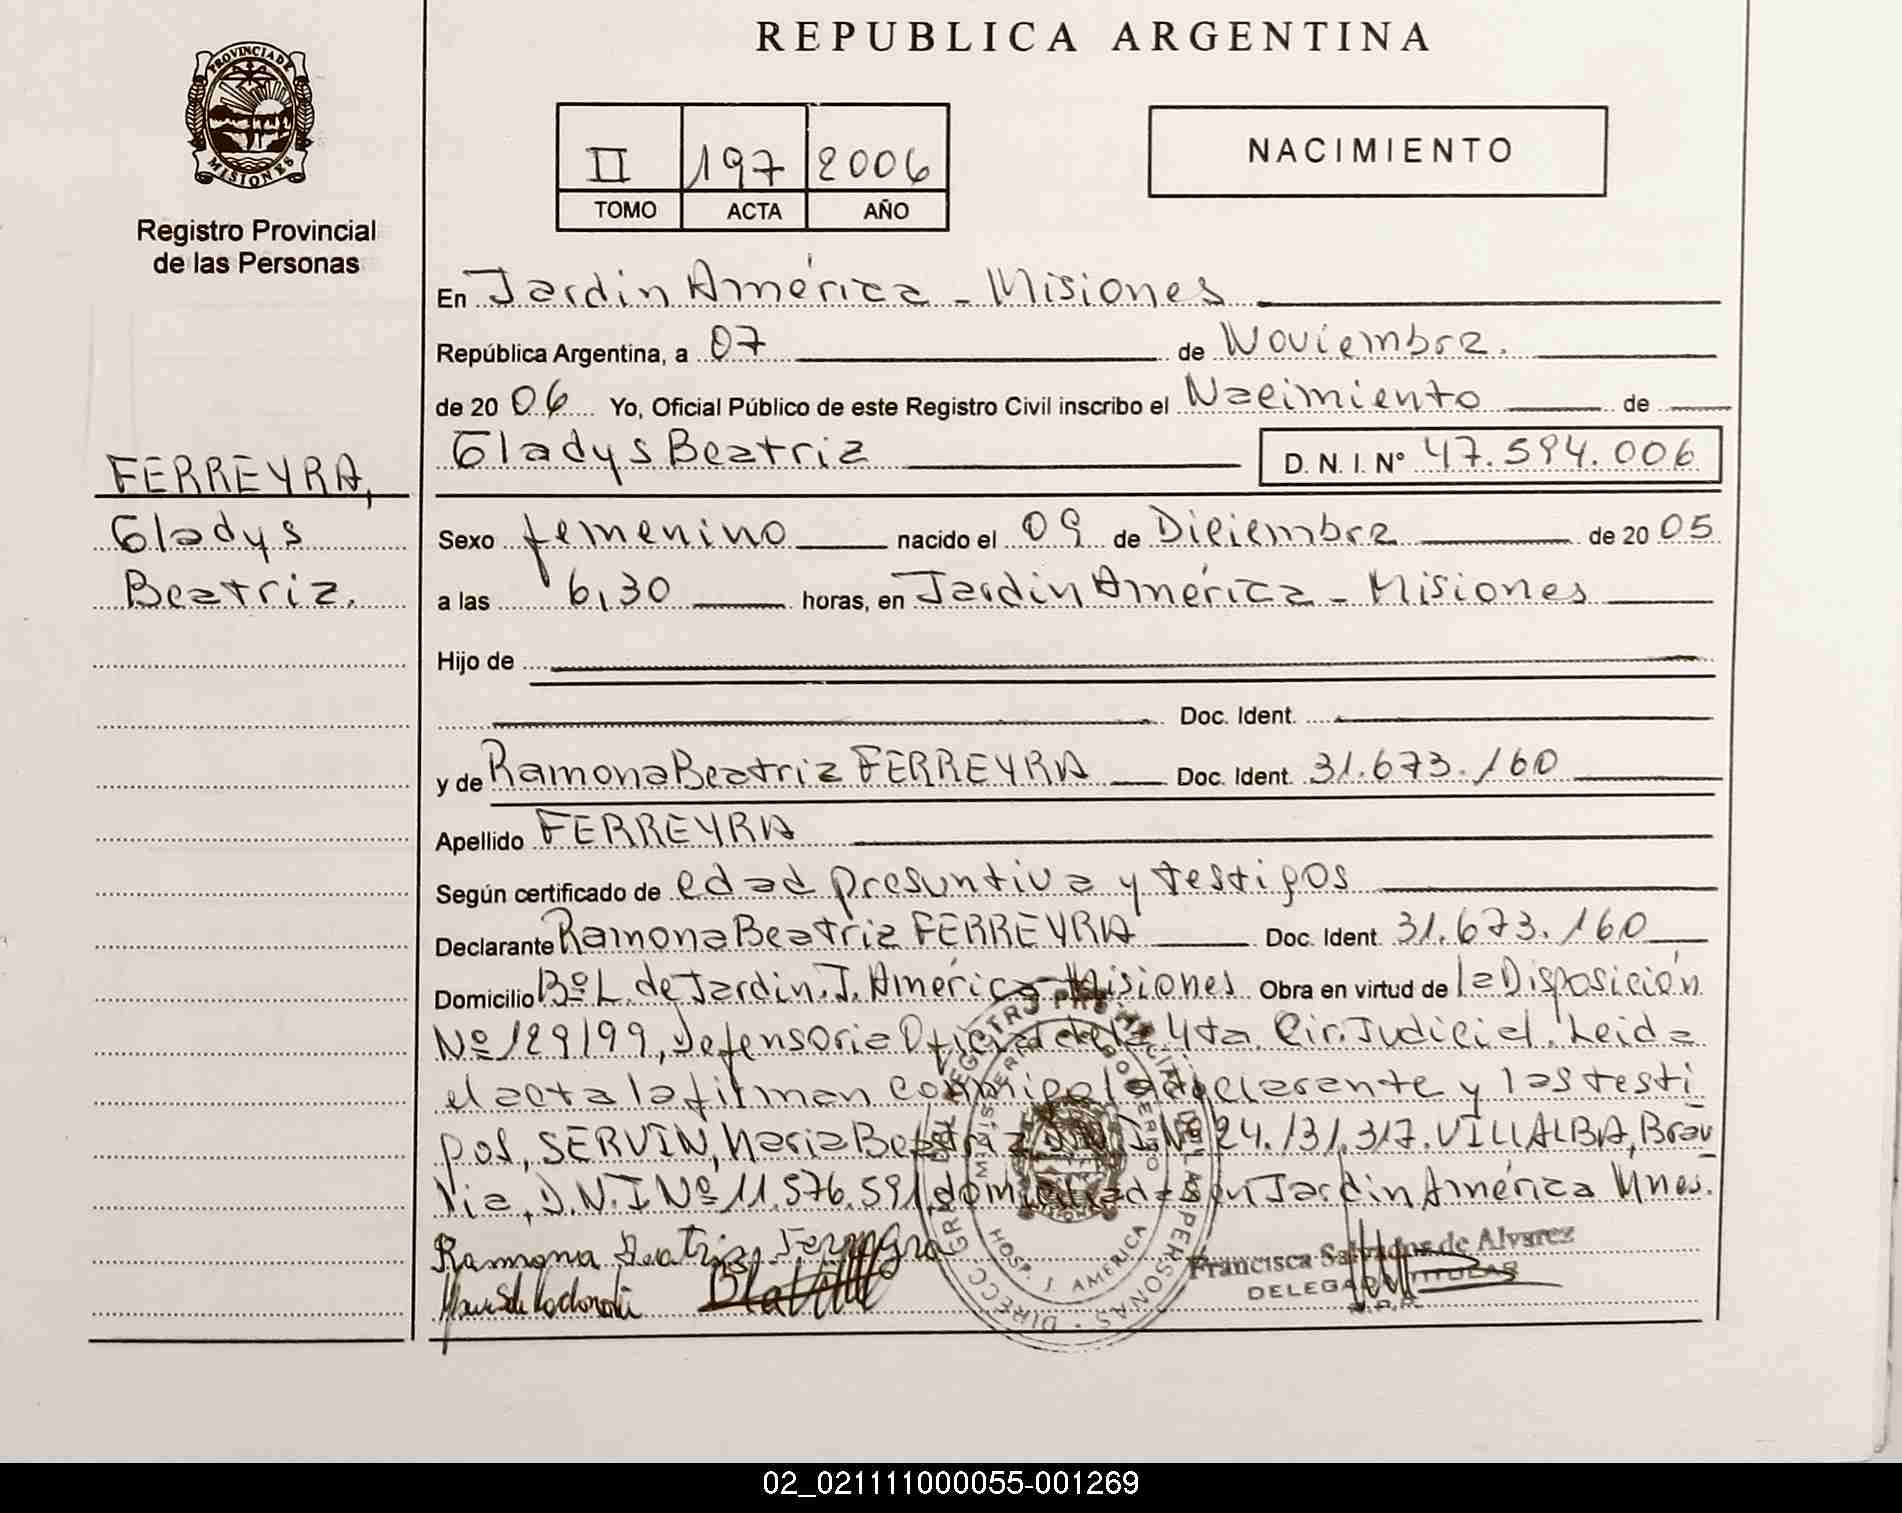 PROVINCIA DE
MISIONES
Registro Provincial
de las Personas
FERREYRA,
Gladys
Beatriz.
REPUBLICA ARGENTINA
II 197 2006
TOMO ACTA AÑO
NACIMIENTO
En Jardin América - Misiones
República Argentina, a 07 de Noviembre.
de 20 06 Yo, Oficial Público de este Registro Civil inscribo el Nacimiento de
Gladys Beatriz D. N. I. Nº 47.594.006
Sexo femenino nacido el 09 de Diciembre de 20 05
a las 6,30 horas, en Jardin América - Misiones
Hijo de
Doc. Ident.
y de Ramona Beatriz FERREYRA Doc. Ident. 31.673.160
Apellido FERREYRA
Según certificado de edad presuntiva y testigos
Declarante Ramona Beatriz FERREYRA Doc. Ident. 31.673.160
Domicilio Bº L. de Jardin. J. América - Misiones Obra en virtud de la Disposición
Nº 129/99, Defensoria Oficial de la 4ta. Cir. Judicial. Leida
el acta la firman conmigo la declarante y las testi
gos, SERVIN, Maria Beatriz D.N.I Nº 24.131.317. VILLALBA, Brau
lia, D.N.I Nº 11.576.591, domiciliadas en Jardin América Mnes.
Ramona Beatriz Ferreyra
Francisca de Alvarez
DELEGADA TITULAR
DIRECC. GRAL. DEL REGISTRO PROVINCIAL DE LAS PERSONAS
MINISTERIO DE GOBIERNO
HOSP. J. AMERICA
02_021111000055-001269